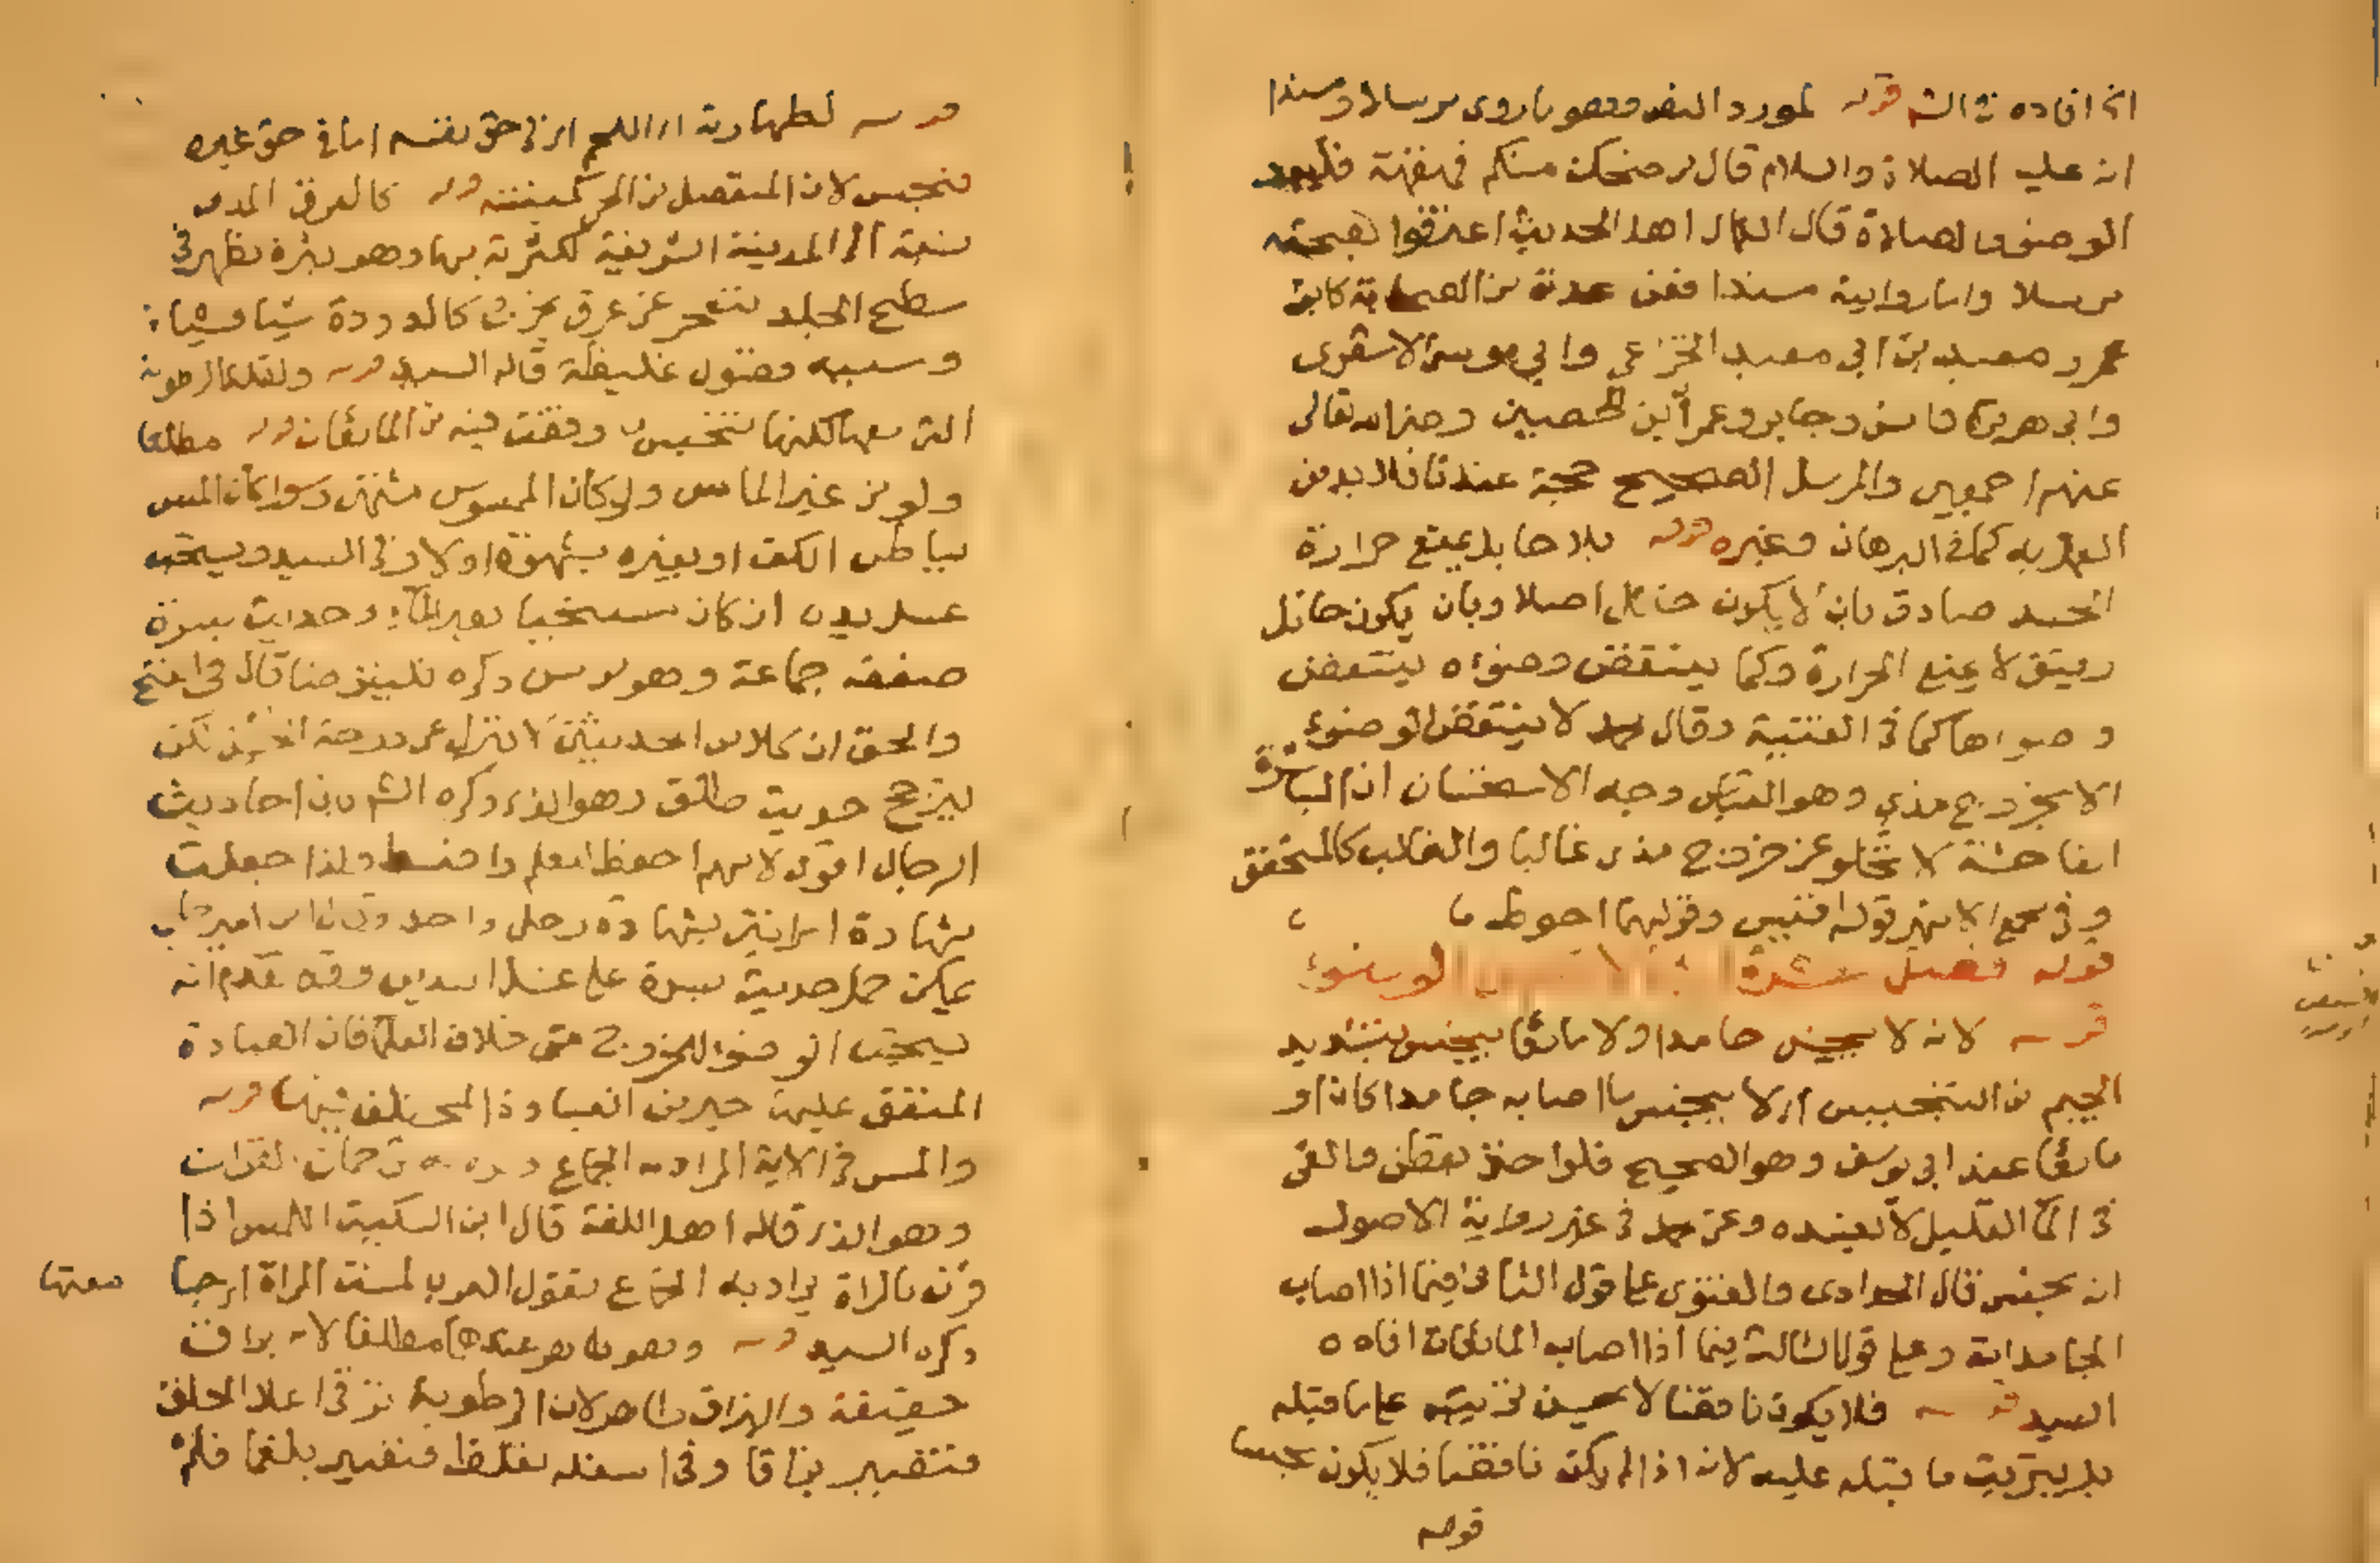 افاده في الش قوله لمورد النص وهو ما روى مرسلا ومسندا
انه عليه الصلاة والسلام قال من ضحك منكم قهقهة فليعد
الوضوء والصلاة قال الكمال اهل الحديث اعترفوا بصحته
مرسلا واما رواية مسندا فعن عدة من الصحابة كابن
عمر ومعبد بن ابي معبد الخزاعي وابي موسى الاشعري
وابي هريرة وانس وجابر وعمران بن الحصين رضي الله تعالى
عنهم اجمعين والمرسل الصحيح حجة عندنا فلا بد من
العمل به كما في البرهان وغيره قوله بلا حايل يمنع حرارة
الجسد صادق بان لا يكون حائل اصلا وبان يكون حائل
رقيق لا يمنع الحرارة وكما ينتقض وضوءه ينتقض
وضوءها كما في القنية وقال محمد لا ينتقض الوضوء
الا بخروج مذي وهو القياس وجه الاستحسان ان المباشرة
الفاحشة لا تخلو عن خروج مذي غالبا والغالب كالمتحقق
وفي مجمع الانهر قوله اقيس وقولهما احوط
قوله فصل عشرة الوضوء
قوله لانه لا ينجس جامدا ولا مائعا ينجس بتشديد
الجيم من التنجيس اي لا ينجس ما اصابه جامدا كان او
مائعا عند ابي يوسف وهو الصحيح فلو اخذ بقطن والقي
في الماء القليل لا يفسده وعن محمد في غير رواية الاصول
انه نجس قال الحدادي والفتوى على قول الثاني فيما اذا اصاب
الجامدات وعلى قول الثالث فيما اذا اصاب المائعات افاده
السيد قوله فلا يكون ناقضا لا يحسن ترتيبه على ما قبله
بل يترتب ما قبله عليه لانه اذا لم يكن ناقضا فلا يكون نجسا
قوله
قوله لطهارته اي اللحم اي في حق نفسه اما في حق غيره
فنجس لان المنفصل من الحي كميتته قوله كالعرق المدني
نسبة الى المدينة الشريفة لكثرته بها وهو بثرة تظهر في
سطح الجلد تنفجر عن عرق يخرج كالدودة شيئا فشيئا
وسببه فضول غليظة قاله السيد قوله ولقلة الرطوبة
التي معها لكنها تنجس لو وقعت فيه من المائعات قوله مطلقا
ولو من غير الماس ولو كان الممسوس مشتهى وسواء كان المس
بباطن الكف او بغيره بشهوة او لا وفي السيد ويستحب
غسل يديه ان كان مستنجيا بغير الماء وحديث بسرة
ضعفه جماعة وهو لو مس ذكره فليتوضا قال في الفتح
والحق ان كلا من الحديثين لا ينزل عن درجة الحسن لكن
يترجح حديث طلق وهو الذي ذكره الش بان احاديث
الرجال اقوى لانهم احفظ للعلم واضبط ولذا جعلت
شهادة امراتين بشهادة رجل واحد وقال ابن امير حاج
يمكن حمل حديث بسرة على غسل اليدين وقد تقدم انه
يستحب الوضوء للخروج من خلاف العلماء فان العبادة
المتفق عليها خير من العبادة المختلف فيها قوله
والمس في الاية المراد به الجماع ترجمان القران
وهو الذي قاله اهل اللغة قال ابن السكيت اللمس اذا
قرن بالمراة يراد به الجماع تقول العرب لمست المراة اي جا
معتها
ذكره السيد قوله وهو طاهر عندهما مطلقا لانه بزاق
حقيقة والبزاق طاهر لان الرطوبة ترقى اعلا الحلق
فتتغير بزاقا وفي اسفله تغلظ فتغير بلغما فلم